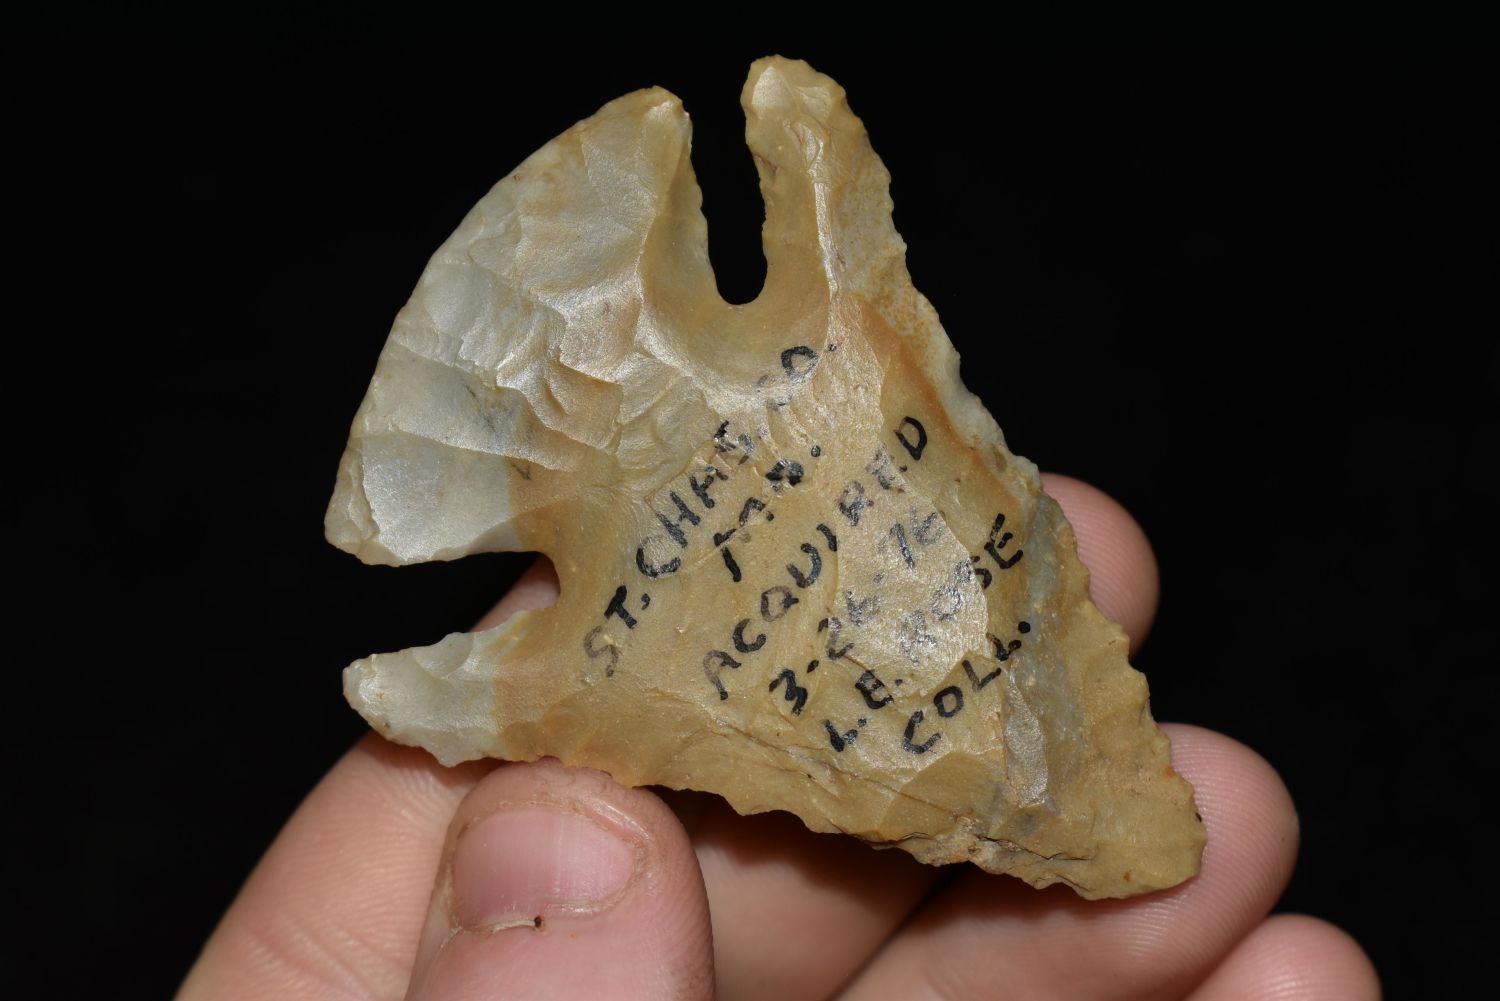 ST. CHAS. CO.
MO.
ACQUIRED
3-26-76
L.E. ROSE
COLL.